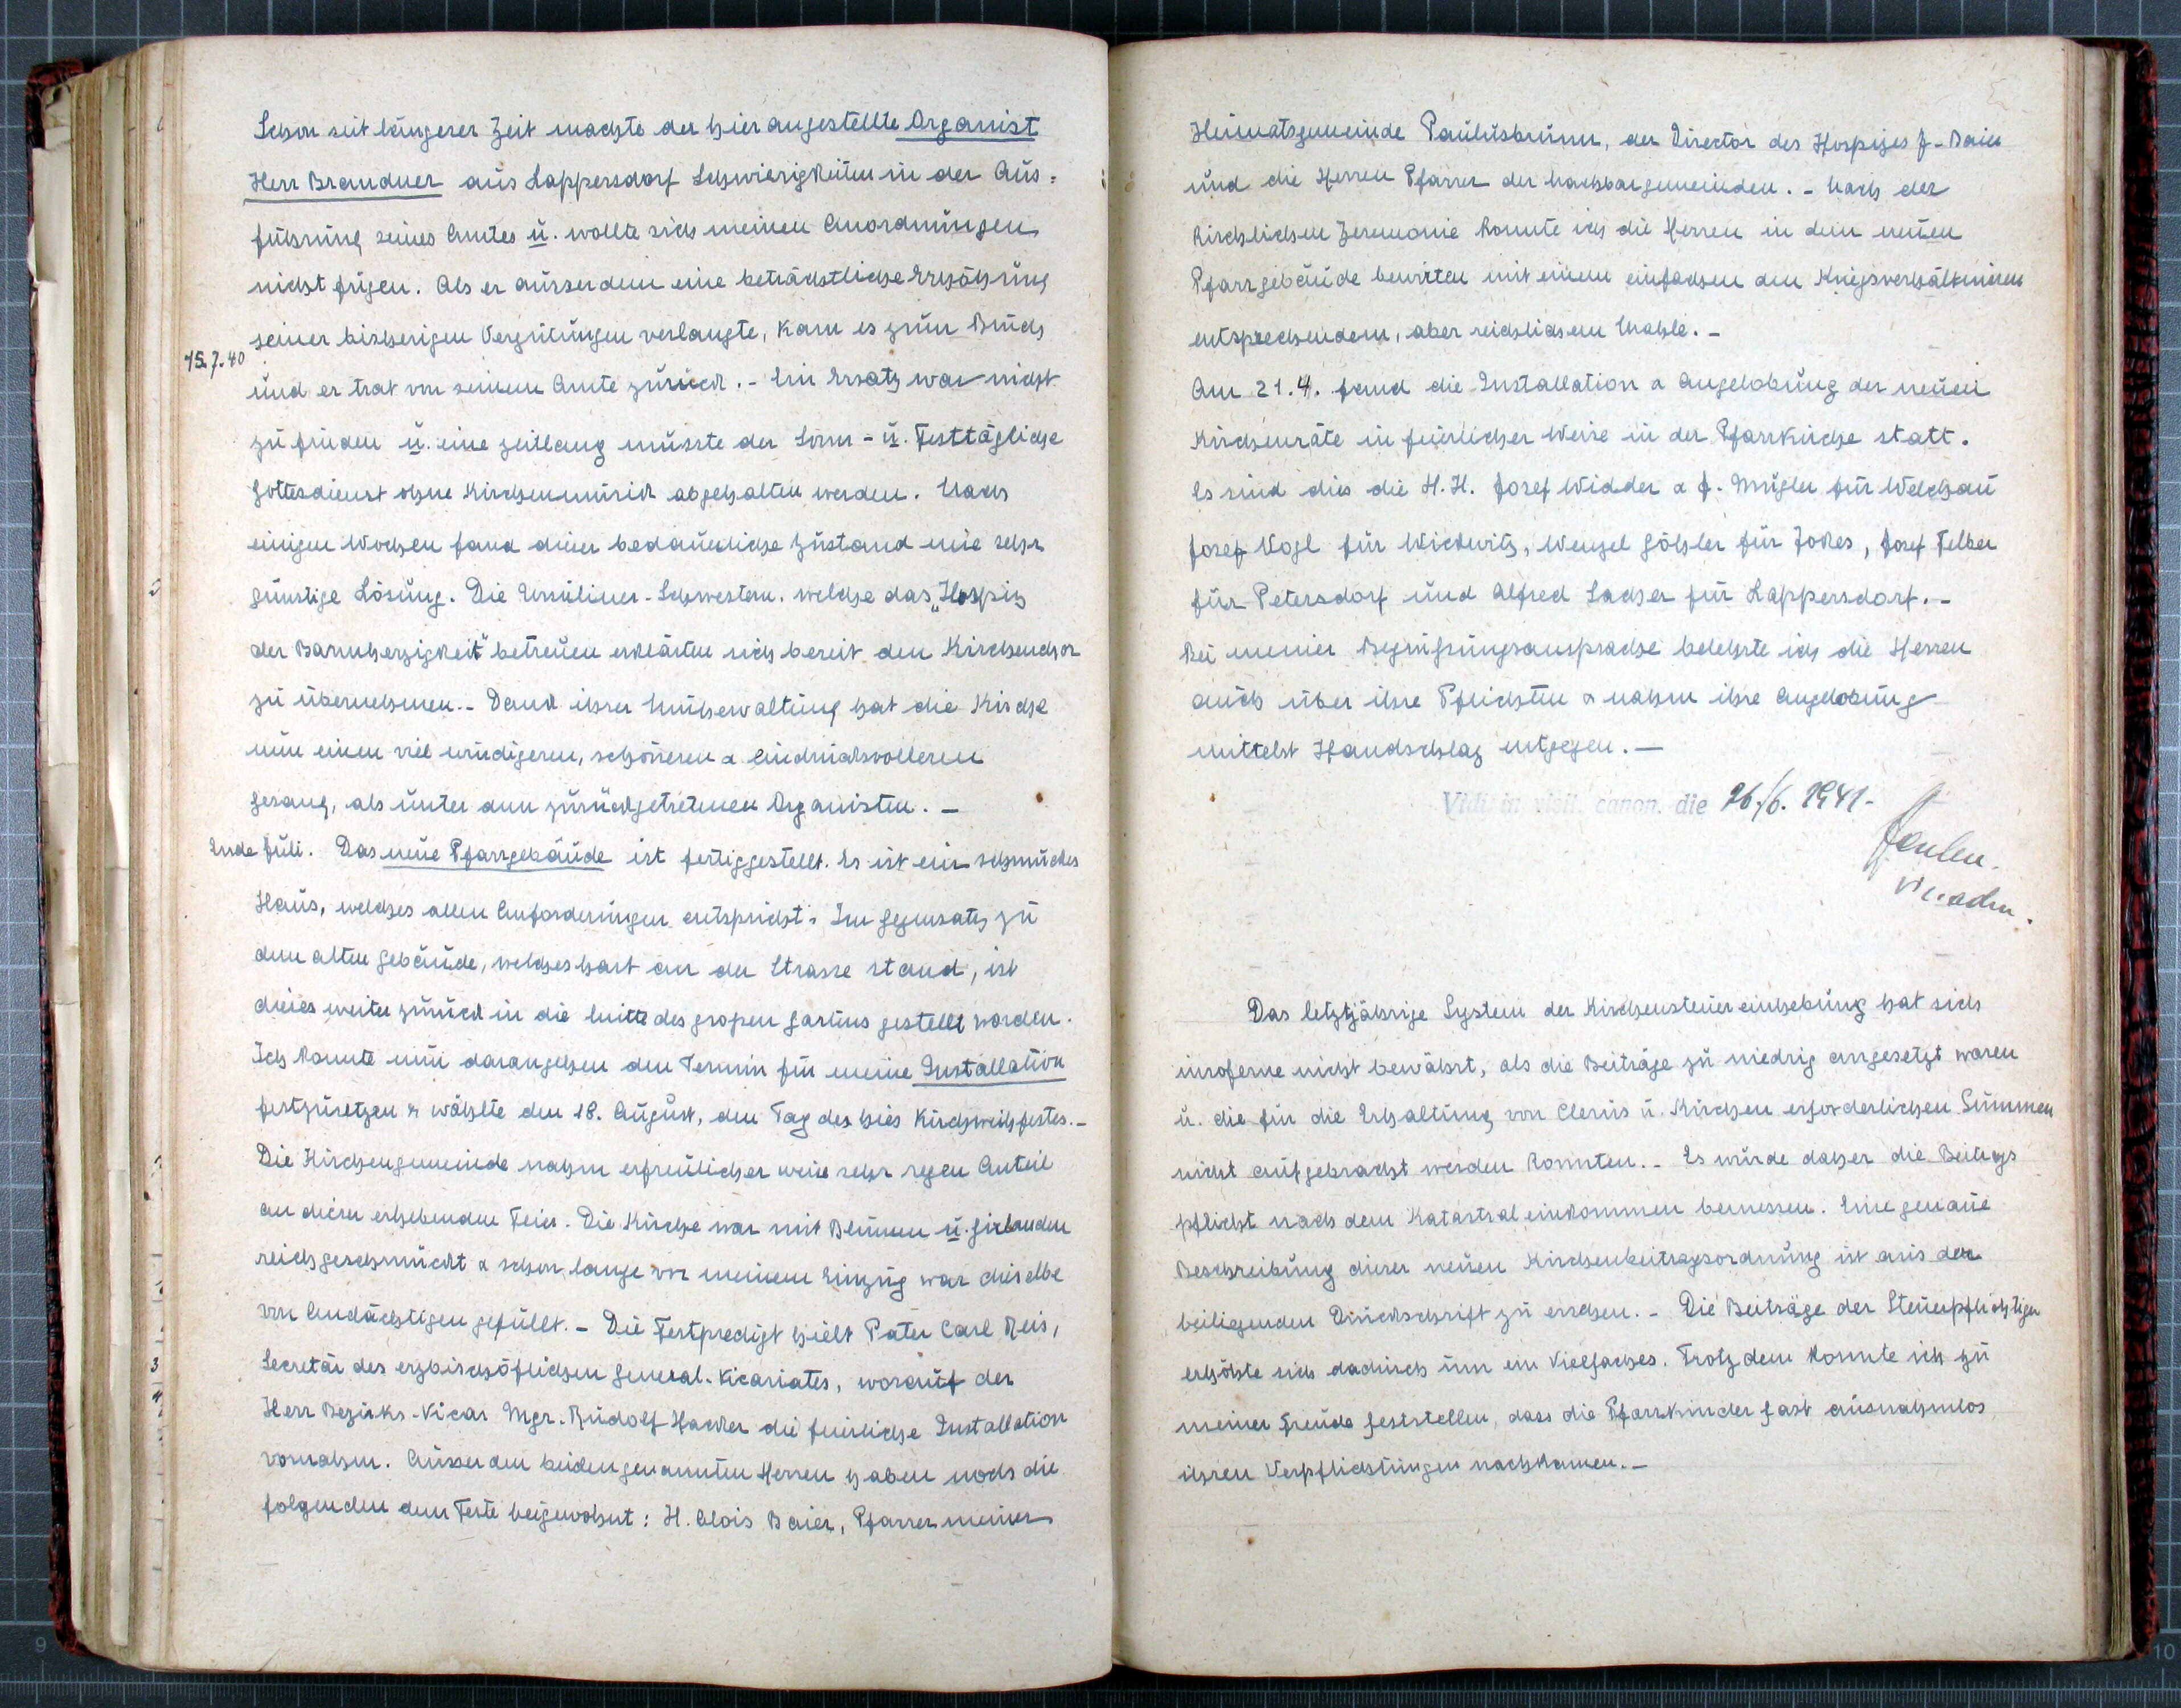 Schon seit längerer Zeit machte der hier angestellte Organist
Herr Brandner aus Lappersdorf Schwierigkeiten in der Aus=
führung seines Amtes u. wollte sich meinen Anordnungen
nicht fügen. Als er ausserdem eine beträchtliche Erhöhung
seiner bisherigen Vergütungen verlangte, kam es zum Bruch
15.7.40
und er trat von seinem Amte zurück. - Ein Ersatz war nicht
zu finden u. eine zeitlang musste der Sonn- u. Festtägliche
Gottesdienst ohne Kirchenmusick abgehalten werden. Nach
einigen Wochen fand dieser bedauerliche Zustand eine sehr
günstige Lösung. Die Ursuliner-Schwestern, welche das „Hospiz
der Barmherzigkeit" betreuen erklärten sich bereit den Kirchenchor
zu übernehmen. - Dank ihrer Mühewaltung hat die Kirche
nun einen viel würdigeren, schöneren & eindrucksvolleren
Gesang, als unter dem zurückgetretenen Organisten. -
Ende Juli. Das neue Pfarrgebäude ist fertiggestellt. Es ist ein schmuckes
Haus, welches allen Anforderungen entspricht. Im Gegensatz zu
dem alten Gebäude, welches hart an der Strasse stand, ist
dieses weiter zurück in die Mitte des großen Gartens gestellt worden.
Ich konnte nun darangehen den Termin für meine Installation
festzusetzen & wählte den 18. August, den Tag des hies Kirchweihfestes. -
Die Kirchengemeinde nahm erfreulicher weise sehr regen Anteil
an dieser erhebenden Feier. Die Kirche war mit Blumen u. Girlanden
reich geschmückt & schon lange vor meinem Einzug war dieselbe
von Andächtigen gefüllt. - Die Festpredigt hielt Pater Carl Reis,
Secretär des erzbischöflichen General-Vicariates, worauf der
Herr Bezirks-Vicar Mgr. Rudolf Hacker die feierliche Installation
vornahm. Ausser den beiden genannten Herren haben noch die
folgenden dem Feste beigewohnt: H. Alois Baier, Pfarrer meiner
Heimatsgemeinde Paulusbrunn, der Director des Hospizes J. Baier
und die Herren Pfarrer der Nachbargemeinden. - Nach der
kirchlichen Zeremonie konnte ich die Herren in dem neuen
Pfarrgebäude bewirten mit einem einfachen den Kriegsverhältnissen
entsprechendem, aber reichlichem Mahle. -
Am 21.4. fand die Installation & Angelobung der neuen
Kirchenräte in feierlicher Weise in der Pfarrkirche statt.
Es sind dies die H.H. Josef Widder & J. Mügler für Welchau
Josef Vogl für Wickwitz, Wenzel Göhsler für Jokes, Josef Felber
für Petersdorf und Alfred Lacher für Lappersdorf. -
Bei meiner Begrüßungsansprache belehrte ich die Herren
auch über ihre Pflichten & nahm ihre Angelobung
mittelst Handschlag entgegen. -
Vidi in visit. canon. die 26./6. 1941-
Das letztjährige System der Kirchensteuereinhebung hat sich
insoferne nicht bewährt, als die Beiträge zu niedrig angesetzt waren
u. die für die Erhaltung von Clerus u. Kirchen erforderlichen Summen
nicht aufgebracht werden konnten. - Es wurde daher die Beitrags
pflicht nach dem Katastraleinkommen bemessen. Eine genaue
Beschreibung dieser neuen Kirchenbeitragsordnung ist aus der
beiliegenden Druckschrift zu ersehen. - Die Beiträge der Steuerpflichtigen
erhöhte sich dadurch um ein Vielfaches. Trotzdem konnte ich zu
meiner Freude feststellen, dass die Pfarrkinder fast ausnahmslos
ihren Verpflichtungen nachkamen. -